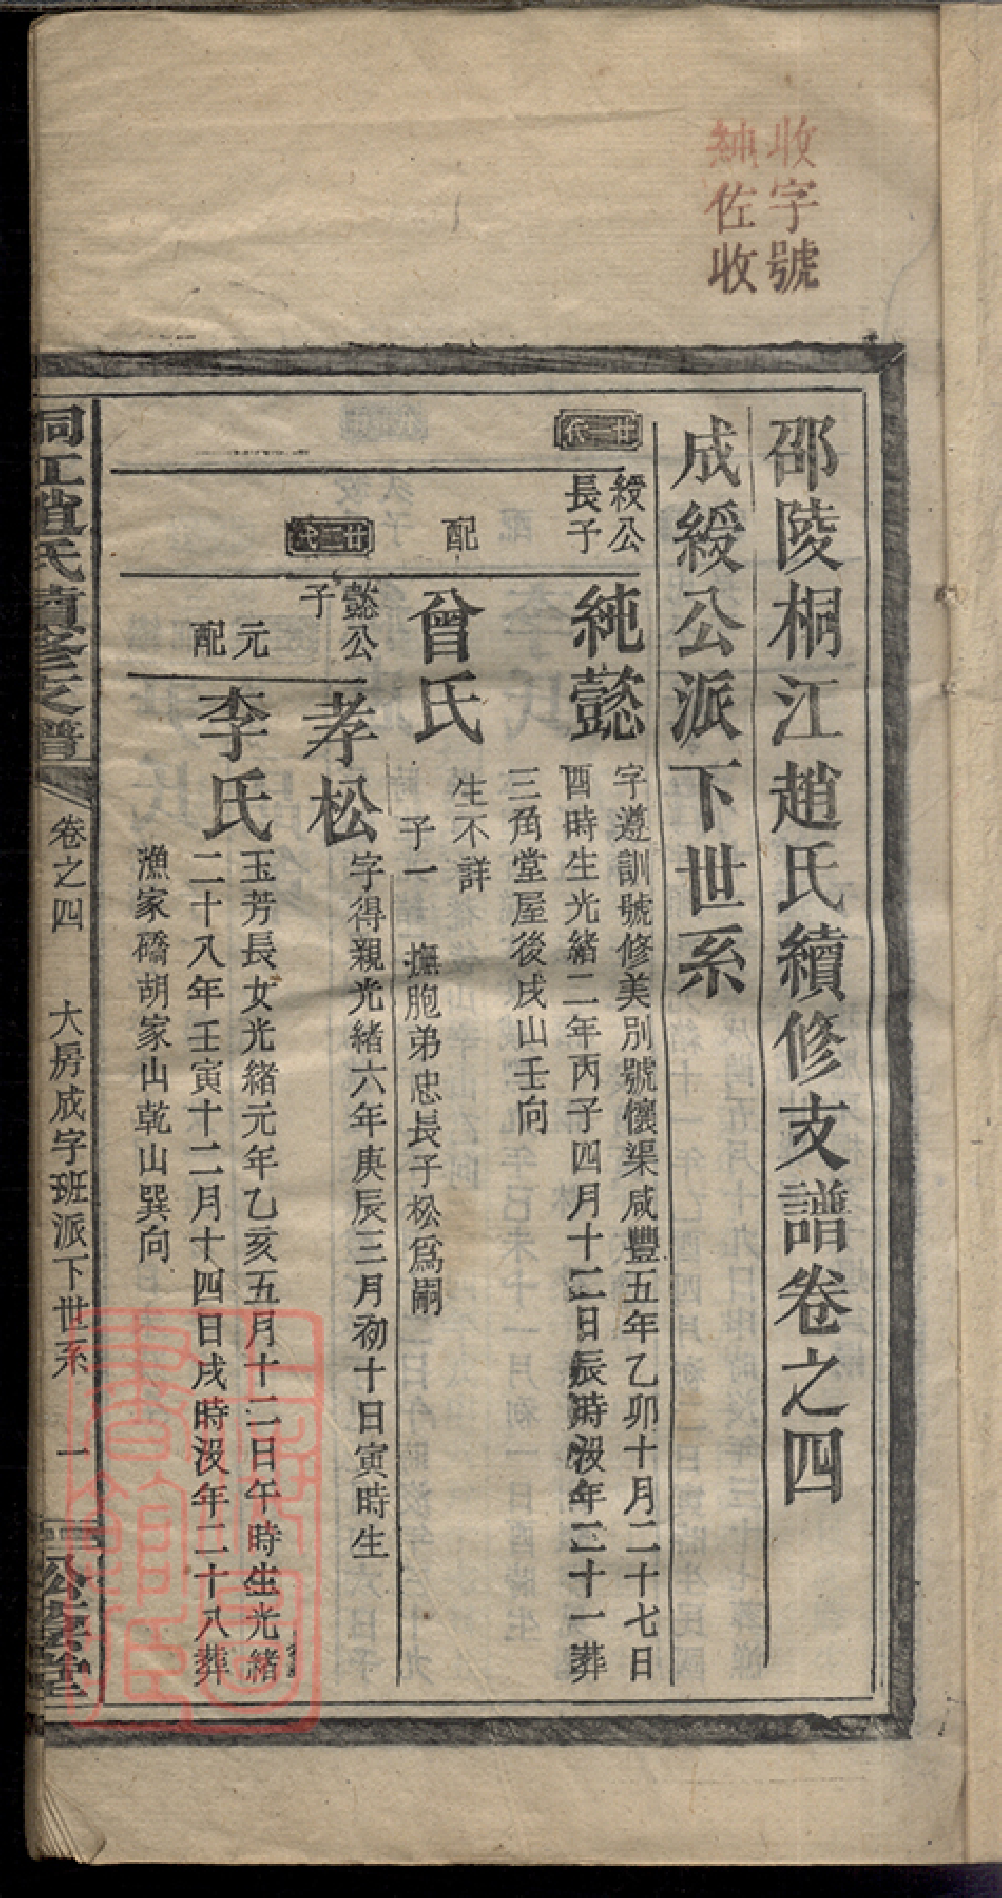 收字號
紳佐收
邵陵桐江趙氏續修支譜卷之四
成綬公派下世系
廿二代
綬公
長子
純懿
字遵訓號修美別號懷渠咸豐五年乙卯十月二十七日
酉時生光緒二年丙子四月十二日辰時沒年二十一葬
三角堂屋後戌山壬向
配
曾氏
生不詳
子一 撫胞弟忠長子松爲嗣
廿三代
懿公
子
孝松
字得親光緒六年庚辰三月初十日寅時生
元
配
李氏
玉芳長女光緒元年乙亥五月十二日午時生光緒
二十八年壬寅十二月十四日戌時沒年二十八葬
漁家礄胡家山乾山巽向
桐江趙氏續修支譜
卷之四 大房成字班派下世系 一
上海圖書館藏